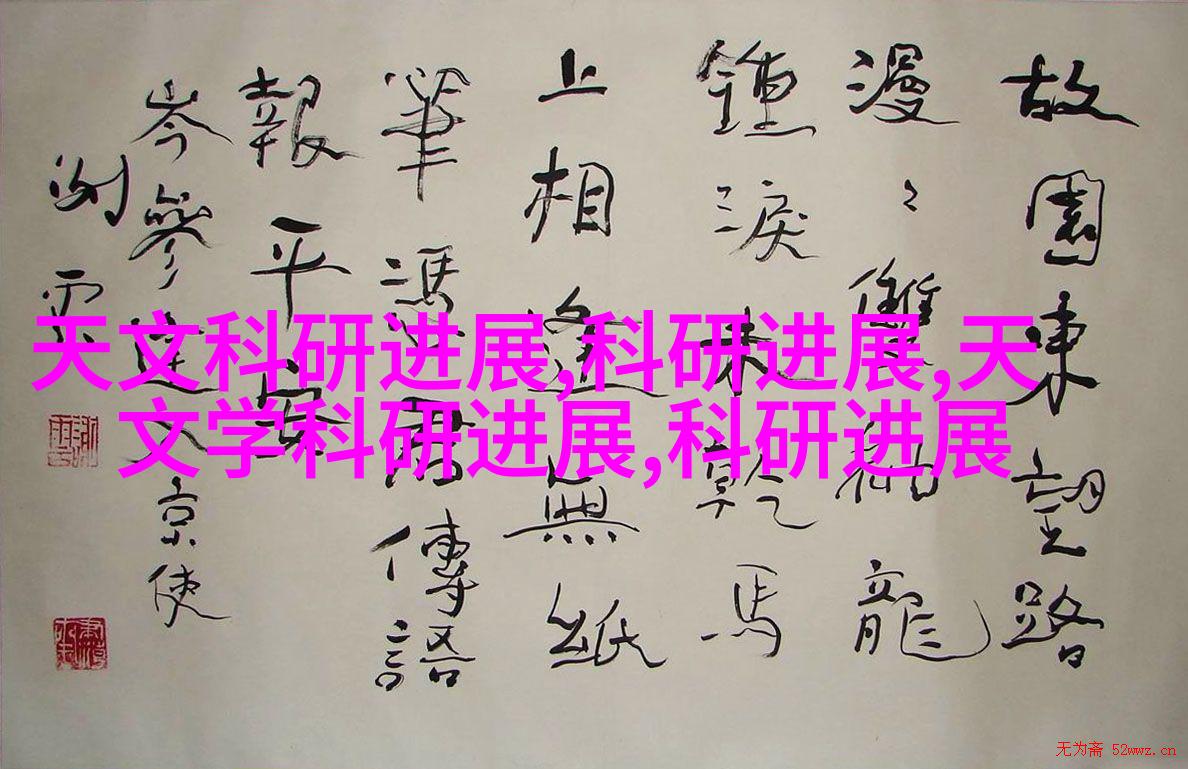 故園東望路
漫〻雙袖龍
鍾淚未乾馬
上相逢無紙
筆馮君傳語
報平安
岑參逢入京使
天文科研进展,科研进展,天
文学科研进展,科研进展
无为斋 52wwz.cn